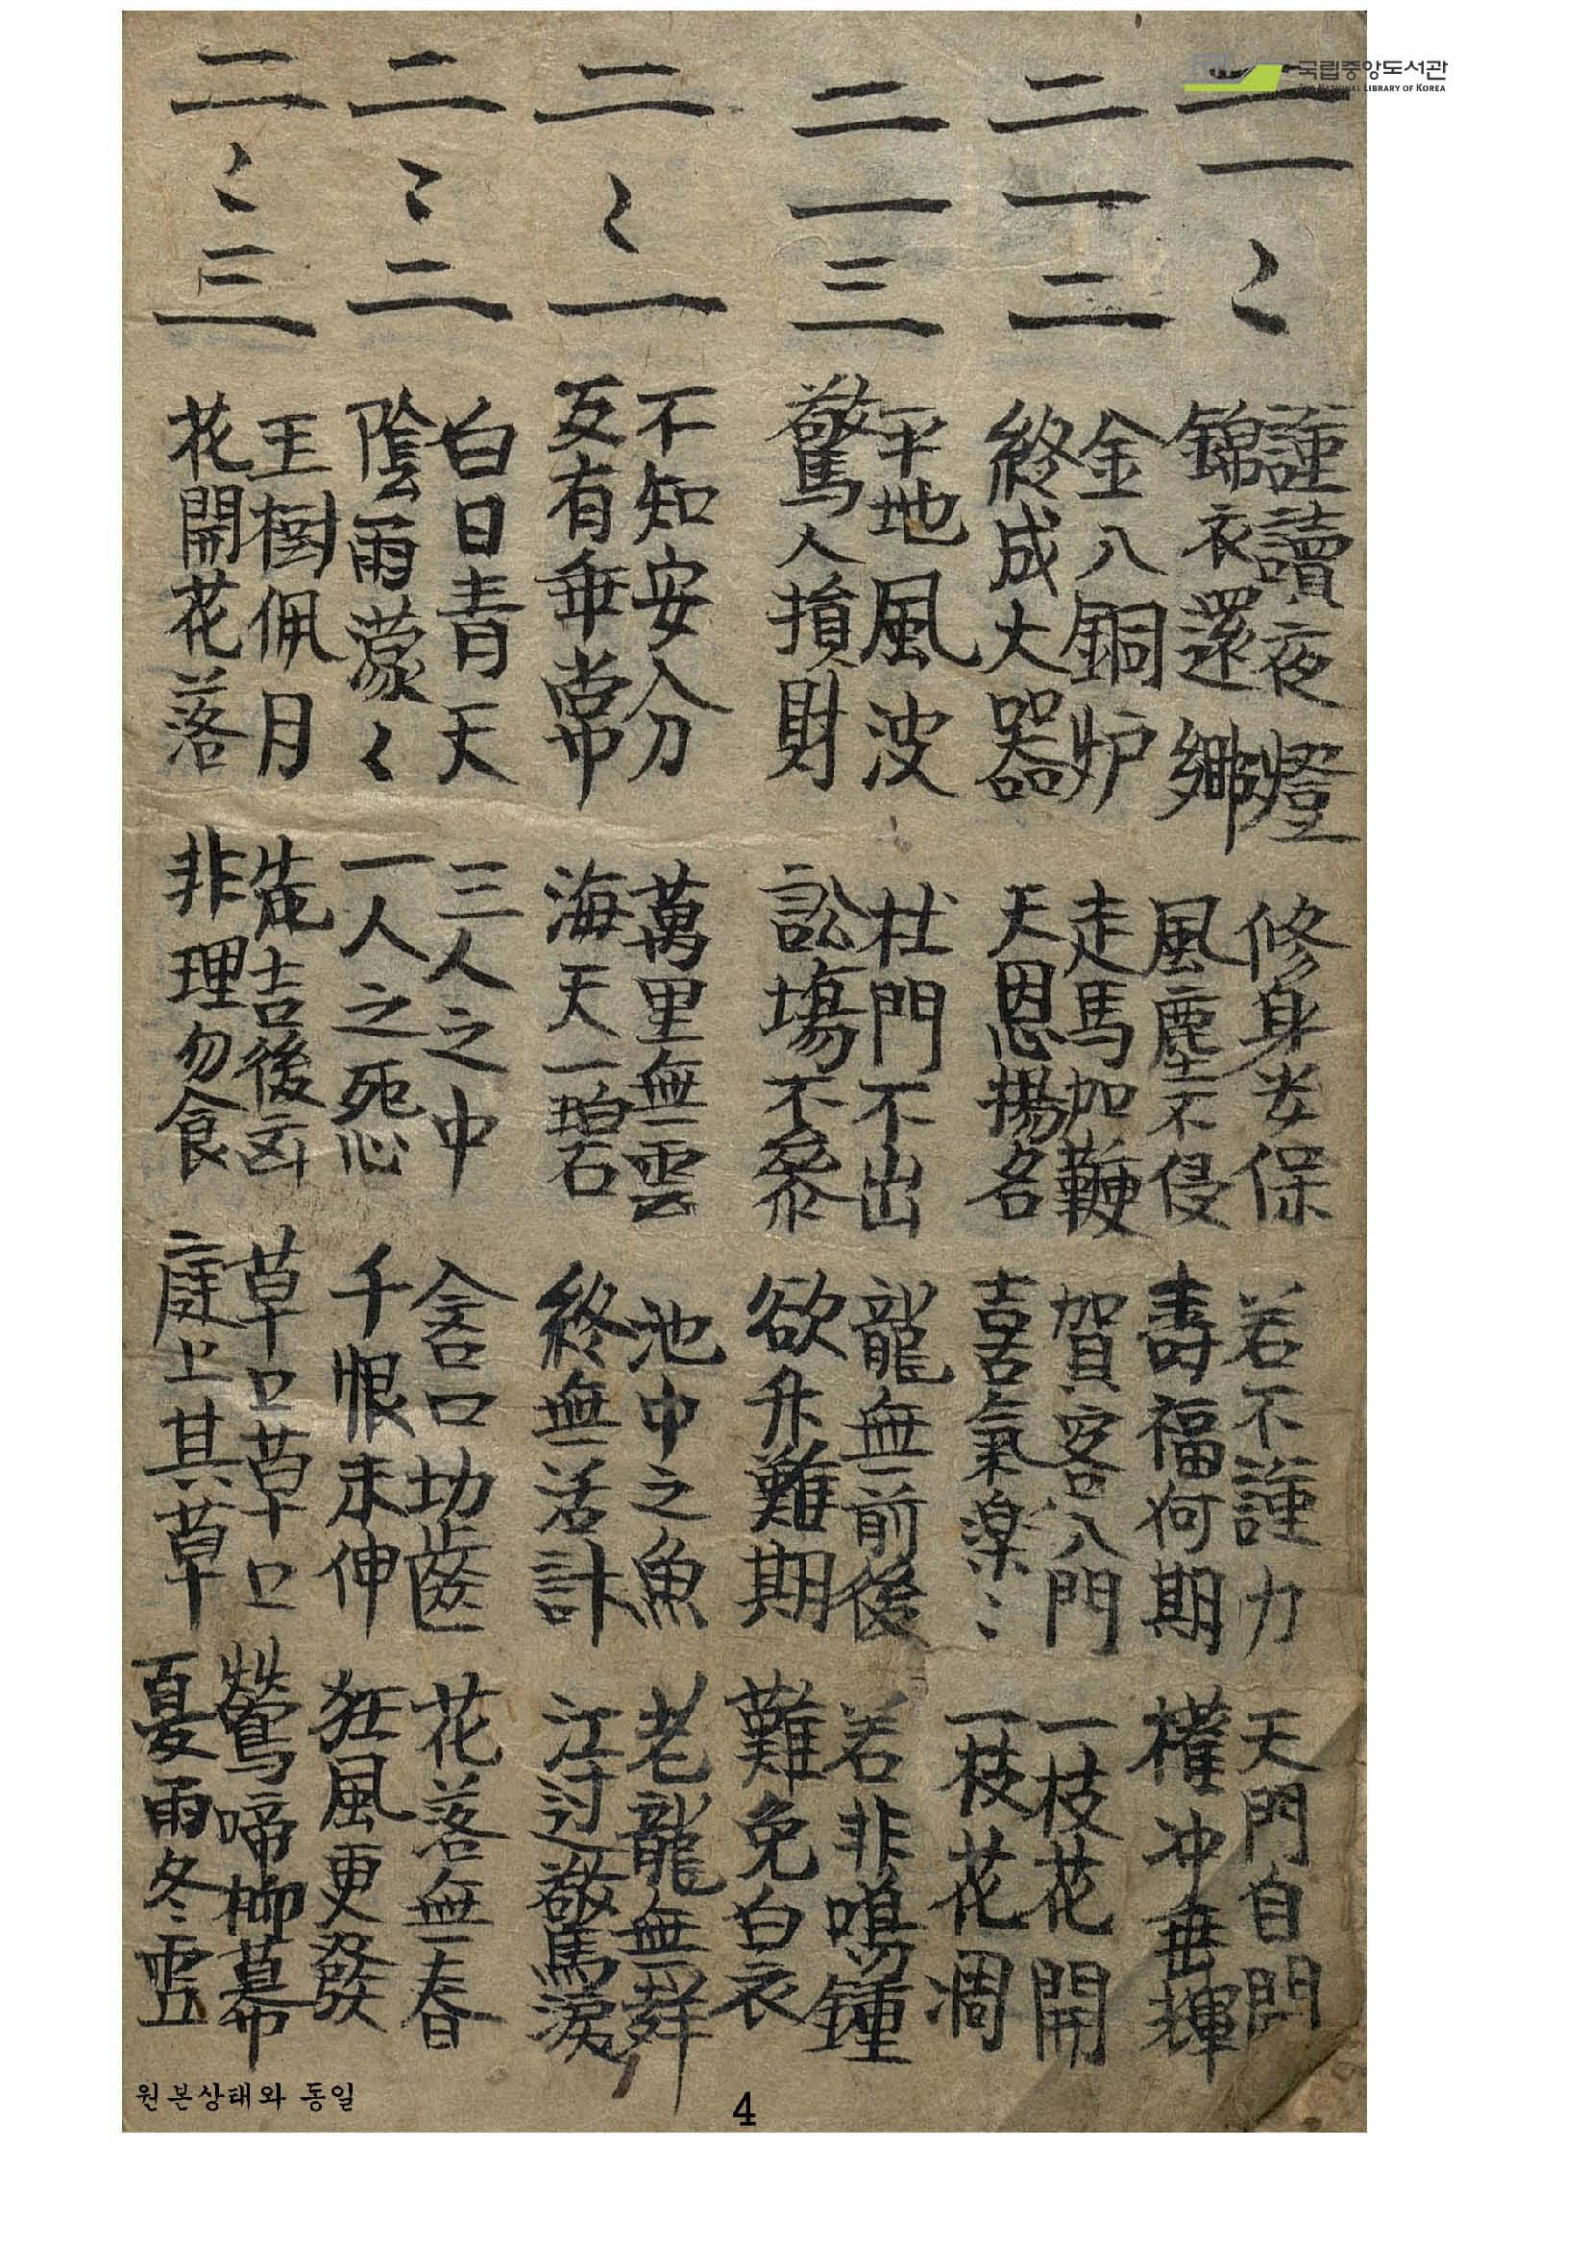 국립중앙도서관
THE NATIONAL LIBRARY OF KOREA
二一〻
謹讀夜燈 修身安保 若不謹力 天門自開
錦衣還鄉 風塵不侵 壽福何期 權冲垂輝
二一二
金入銅炉 走馬加鞭 賀客入門 一枝花開
終成大器 天恩揚名 喜氣楽〻 一枝花凋
二一三
平地風波 杜門不出 龍無前後 若非鳴鍾
驚人損財 訟塲不參 欲升難期 難免白衣
二〻一
不知安分 萬里無雲 池中之魚 老龍無群
互有乖常 海天一碧 終無活計 江过驚淚
二〻二
白日青天 三人之中 含口切齒 花落無春
陰雨濛〻 一人之死心 千恨未伸 狂風更發
二〻三
玉樹佩月 先吉後凶 草口草口 鶯啼柳幕
花開花落 非理勿食 庭上其草 夏雨冬雪
원본상태와 동일
4